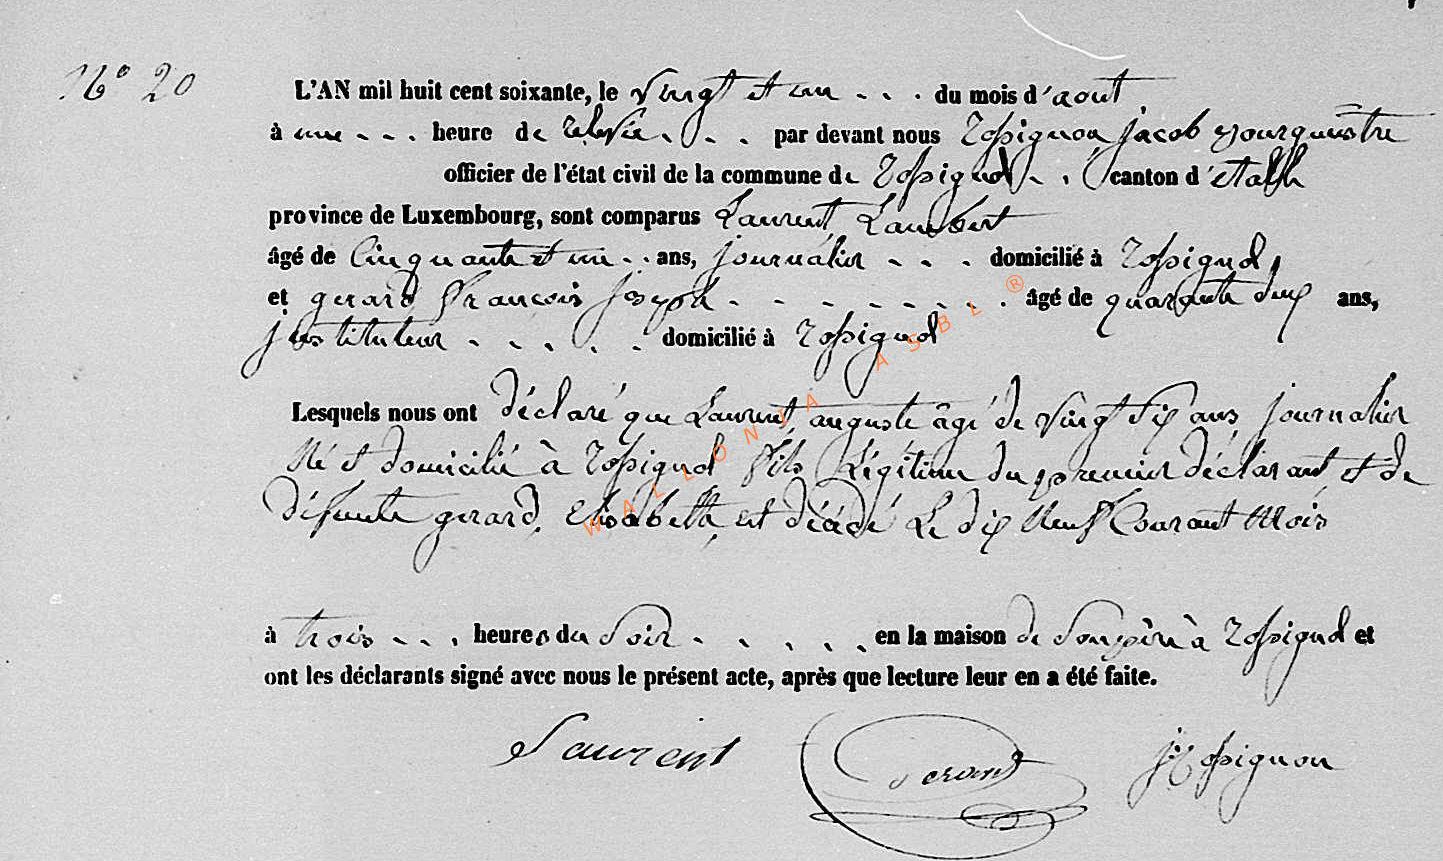 N° 20
L'AN mil huit cent soixante, le vingt et un du mois d'aout
à une heure de relevée par devant nous Rossignon Jacob Bourguestre
officier de l'état civil de la commune de Rossignol canton d'Etalle
province de Luxembourg, sont comparus Laurent Lambert
âgé de Cinquante et un ans, journalier domicilié à Rossignol
et gerard françois joseph âgé de quarante deux ans,
instituteur domicilié à Rossignol
Lesquels nous ont déclaré que Laurent, auguste âgé de Vingt six ans journalier
Né et domicilié à Rossignol fils Légitime du premier déclarant, et de
défunte gerard, Elisabeth, est décédé Le dix Neuf Courant Mois
à trois heures du Soir en la maison de Son père à Rossignol et
ont les déclarants signé avec nous le présent acte, après que lecture leur en a été faite.
Laurent Gerard J Rossignon
WALLONIA ASBL ®